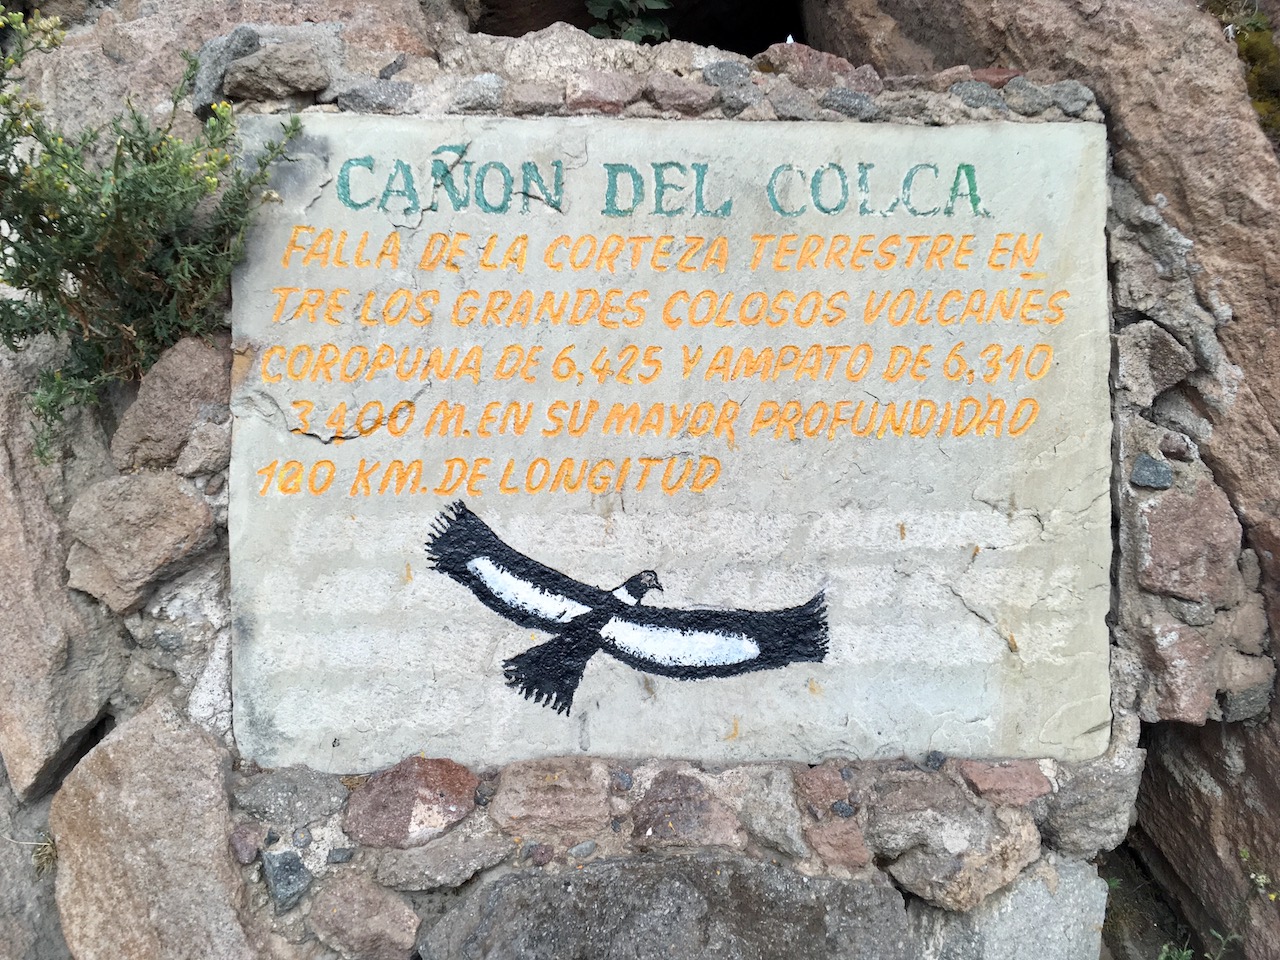 CAÑON DEL COLCA
FALLA DE LA CORTEZA TERRESTRE EN
TRE LOS GRANDES COLOSOS VOLCANES
COROPUNA DE 6,425 Y AMPATO DE 6,310
3,400 M. EN SU MAYOR PROFUNDIDAD
180 KM. DE LONGITUD